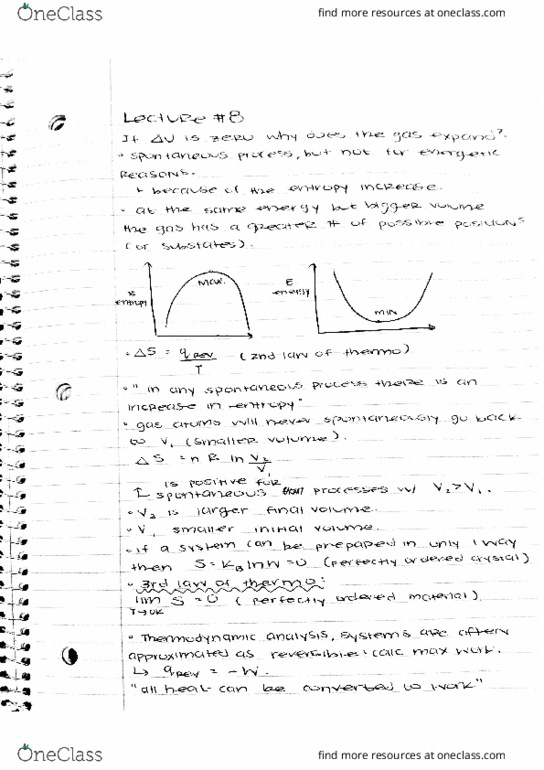 OneClass
find more resources at oneclass.com
Lecture #8
If ΔU is zero why does the gas expand?
• spontaneous process, but not for energetic
reasons.
↳ because of the entropy increase.
• at the same energy but bigger volume
the gas has a greater # of possible positions
(or substates).
S entropy
max.
E energy
min
• ΔS = qrev / T (2nd law of thermo)
• "in any spontaneous process there is an
increase in entropy"
• gas atoms will never spontaneously go back
to V1 (smaller volume).
ΔS = nR ln V2/V1
is positive for
↑ spontaneous processes w/ V2>V1.
• V2 is larger final volume.
• V1 smaller initial volume.
• if a system can be prepaped in only 1 way
then S=kB lnW=0 (perfectly ordered crystal)
• 3rd law of thermo:
lim S = 0 (perfectly ordered material)
T→0K
• Thermodynamic analysis, systems are often
approximated as reversible: calc max work.
↳ qrev = -W.
"all heat can be converted to work"
OneClass
find more resources at oneclass.com